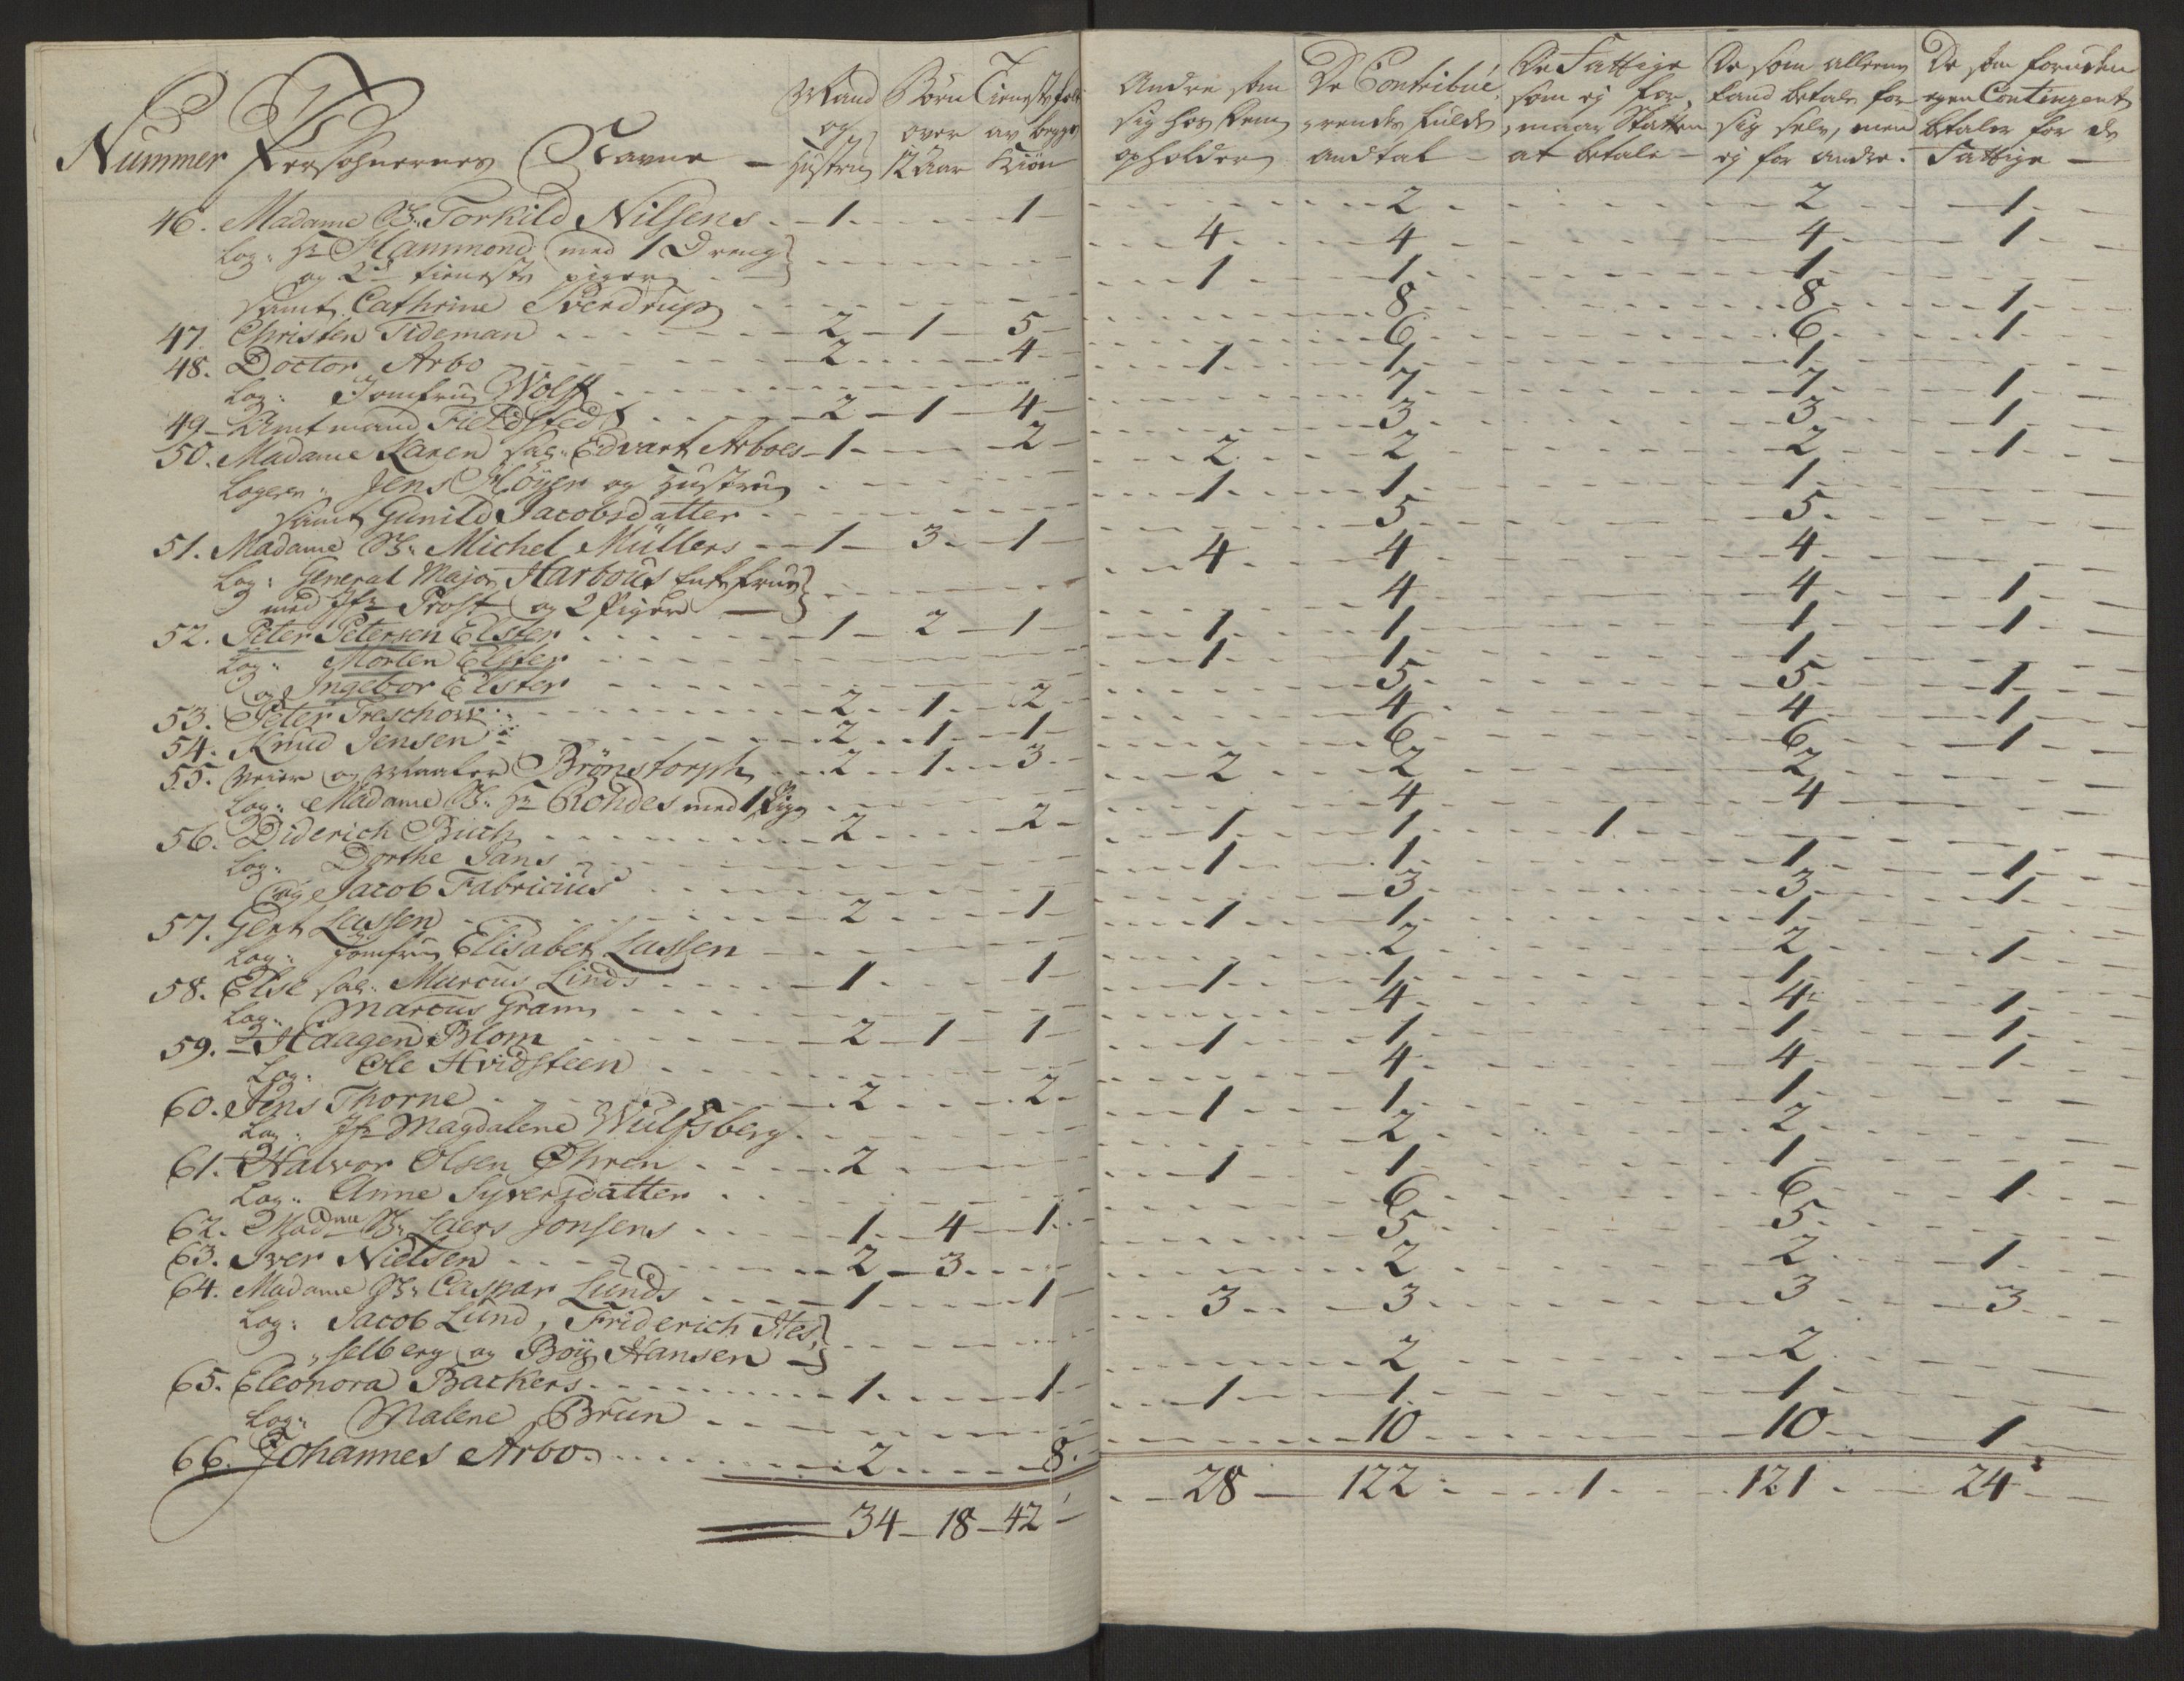 Nummer Persohnernes Navne — Mand og Hustru | Börn over 12 Aar | Tienestefolk av begge Kiön | Andre som sig hos dem opholder | De Contribuerende fulde andtal | De Fattige som ej formaar Skatten at betale | De som alleene kand betale for sig selv, men ej for andre. | De som foruden egen Contingent betaler for de Fattige —
46. Madame S: Torkild Nilsens - 1 - - 1 - - 2 - - 2 - 1
Log: Hr Hammond med 1 Dreng
og 2de tieneste piger - 4 - 4 - - 4 - 1
samt Cathrine Sverdrup - 1 - 1 - - 1
47. Christen Tideman - 2 - 1 - 5 - - 8 - - 8 - 1
48. Doctor Arbo - 2 - - 4 - - 6 - - 6 - 1
Log: Jomfru Wolff - 1 - 1 - - 1
49 - Amtmand Fieldsted - 2 - 1 - 4 - - 7 - - 7 - 1
50. Madame Karen sal: Edvart Arboes - 1 - - 2 - - 3 - - 3 - 1
Logerer: Jens Höyer og Hustru - 2 - 2 - - 2 - 1
samt Gunild Jacobsdatter - 1 - 1 - - 1
51. Madame S: Michel Müllers - 1 - 3 - 1 - - 5 - - 5
Log: General Major Harbous Enkefrue
med Jfr Prost og 2 Piger - 4 - 4 - - 4
52. Peter Petersen Elster - 1 - 2 - 1 - - 4 - - 4 - 1
Log: Morten Elster - 1 - 1 - - 1 - 1
og Ingebor Elster - 1 - 1 - - 1
53. Peter Treschow - 2 - 1 - 2 - - 5 - - 5 - 1
54. Knud Jensen - 2 - 1 - 1 - - 4 - - 4 - 1
55. Veier og Maaler Brönstorph - 2 - 1 - 3 - - 6 - - 6 - 1
Log: Madame S: Hr Rohdes med 1 Pige - 2 - 2 - - 2
56. Diderich Buch - 2 - - 2 - - 4 - - 4
Log: Dorthe Jans - 1 - 1 - 1
og Jacob Fabricius - 1 - 1 - - 1 - 1
57. Gert Lassen - 2 - - 1 - - 3 - - 3 - 1
Log: Jomfru Elisabet Lassen - 1 - 1 - - 1
58. Else sal: Marcus Linds - 1 - - 1 - - 2 - - 2 - 1
Log: Marcus Gram - 1 - 1 - - 1
59. Haagen Blom - 2 - 1 - 1 - - 4 - - 4 - 1
Log: Ole Hvidsteen - 1 - 1 - - 1 - 1
60. Jens Thorne - 2 - - 2 - - 4 - - 4 - 1
Log: Jfr Magdalene Wulfsberg - 1 - 1 - - 1
61. Halvor Olsen Öhren - 2 - - - - 2 - - 2
Log: Anne Syversdatter - 1 - 1 - - 1
62. Madme S: Laers Jonsens - 1 - 4 - 1 - - 6 - - 6 - 1
63. Iver Nielsen - 2 - 3 - - 5 - - 5
64. Madame S: Caspar Lunds - 1 - - 1 - - 2 - - 2 - 1
Log: Jacob Lund, Friderich Hes,
„selberg og Boy Hansen - 3 - 3 - - 3 - 3
65. Eleonora Backers - 1 - - 1 - - 2 - - 2
Log: Malene Brun - 1 - 1 - - 1
66. Johannes Arbo - 2 - - 8 - - 10 - - 10 - 1
34 - 18 - 42 - 28 - 122 - 1 - 121 - 24